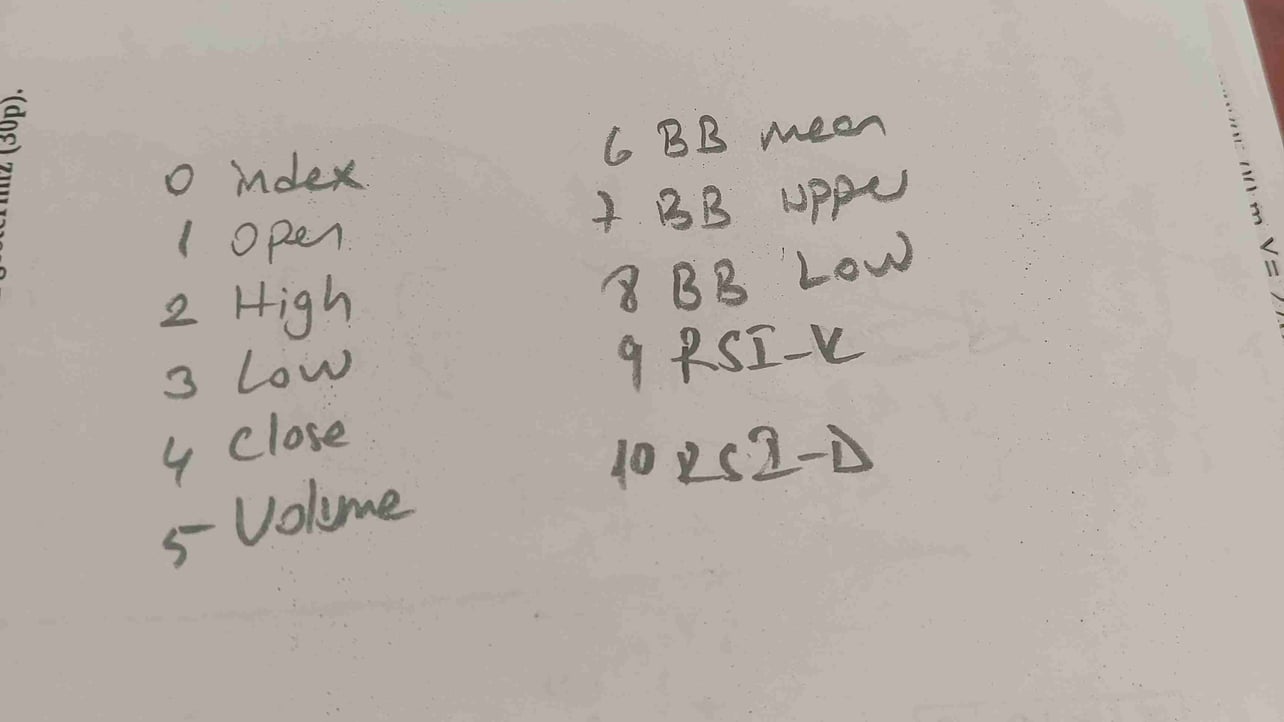 0 index
1 Open
2 High
3 Low
4 Close
5 Volume
6 BB mean
7 BB upper
8 BB Low
9 RSI-K
10 RSI-D
(30p).